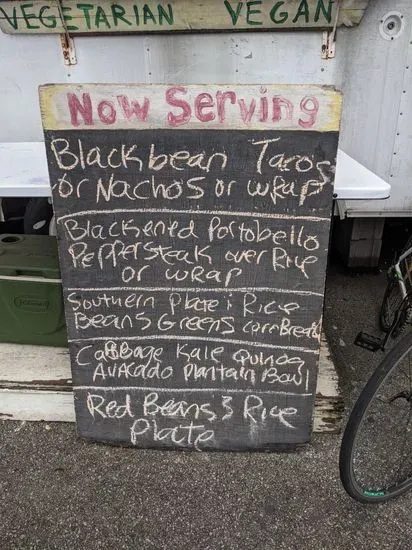 VEGETARIAN VEGAN
Now Serving
Blackbean Tacos
or Nachos or wrap
Blackened Portobello
Peppersteak over Rice
or wrap
Southern Plate: Rice
Beans Greens cornBread
Cabbage Kale Quinoa
Avacado plantain Bowl
Red Beans & Rice
Plate